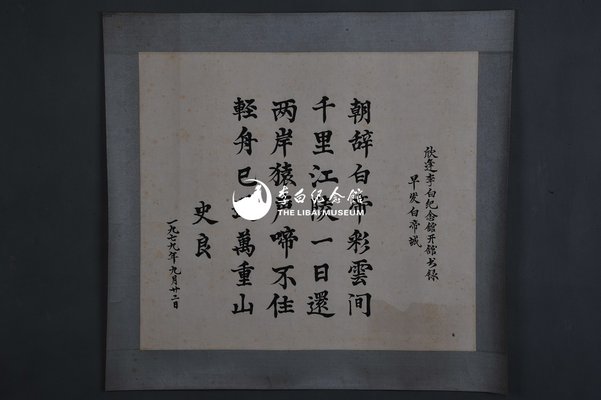 欣逢李白纪念館开館书录
早发白帝城
朝辞白帝彩雲间
千里江陵一日還
两岸猿声啼不住
軽舟已万重山
史良
一九七九年九月廿二日
李白纪念馆
THE LIBAI MUSEUM